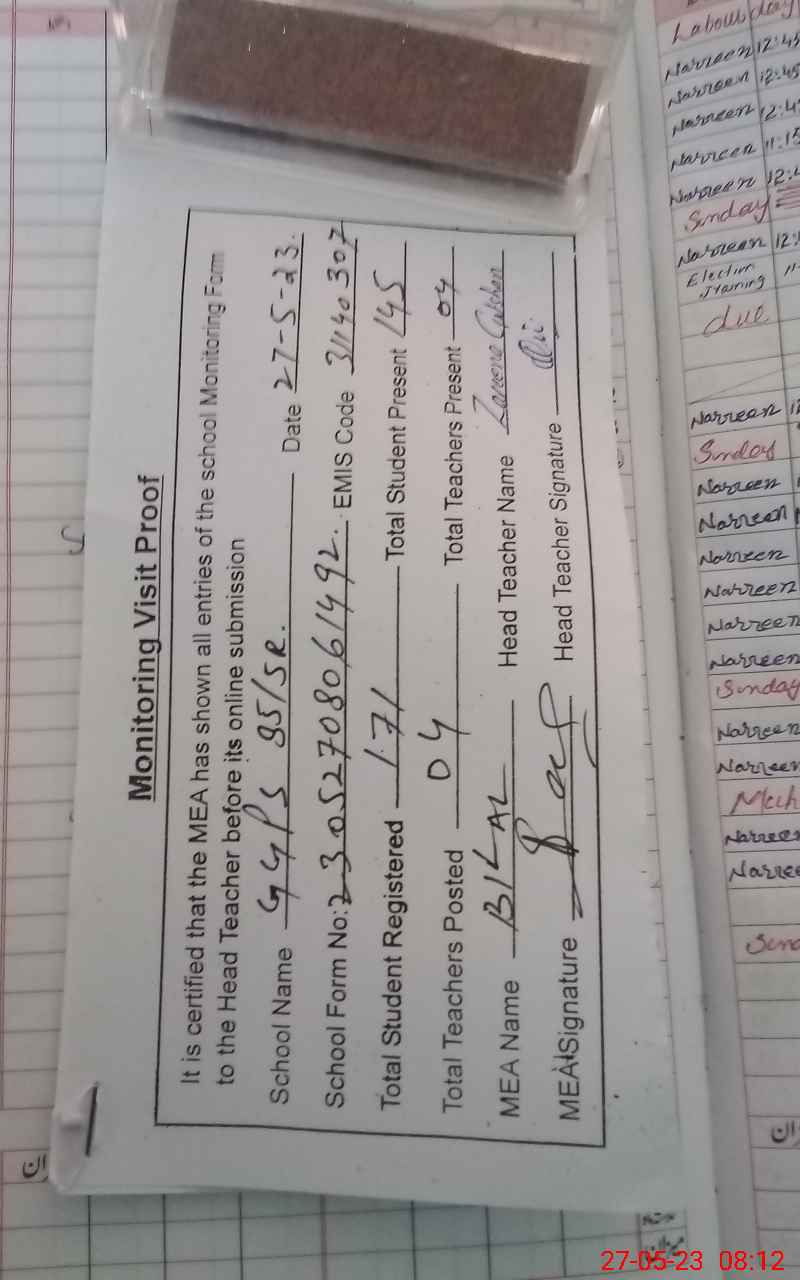 Monitoring Visit Proof
It is certified that the MEA has shown all entries of the school Monitoring Form
to the Head Teacher before its online submission
School Name GGPS 95/SR. Date 27-5-23.
School Form No: 23052708061492. EMIS Code 31140307
Total Student Registered 171 Total Student Present 145
Total Teachers Posted 04 Total Teachers Present 04
MEA Name BILAL Head Teacher Name
MEA Signature Head Teacher Signature
Labour day
Narreen 12:45
Narreen 12:45
Narreen 12:4
Narreen 11:15
Narreen 12:
Sunday
Narreen 12:
Election
Training 11
due
Narreen
Sunday
Narreen
Narreen
Narreen
Narreen
Narreen
Narreen
Sunday
Narreen
Narreen
Narreen
Narree
27-05-23 08:12